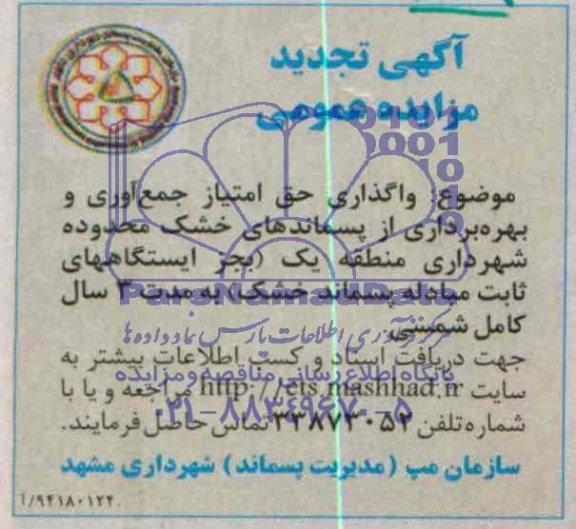 آگهی تجدید
مزایده عمومی
موضوع: واگذاری حق امتیاز جمع‌آوری و
بهره‌برداری از پسماندهای خشک محدوده
شهرداری منطقه یک (بجز ایستگاههای
ثابت مبادله پسماند خشک) به مدت ۳ سال
کامل شمسی
جهت دریافت اسناد و کسب اطلاعات بیشتر به
سایت http://ets.mashhad.ir مراجعه و یا با
شماره تلفن ۳۳۸۷۳۰۵۲ تماس حاصل فرمایند.
سازمان مپ (مدیریت پسماند) شهرداری مشهد
۹۴۱۸۰۱۲۴/ا
ParsNamadData
مرکز فرآوری اطلاعات پارس نماد داده ها
پایگاه اطلاع رسانی مناقصه و مزایده
۰۲۱-۸۸۳۴۹۶۷۰-۵